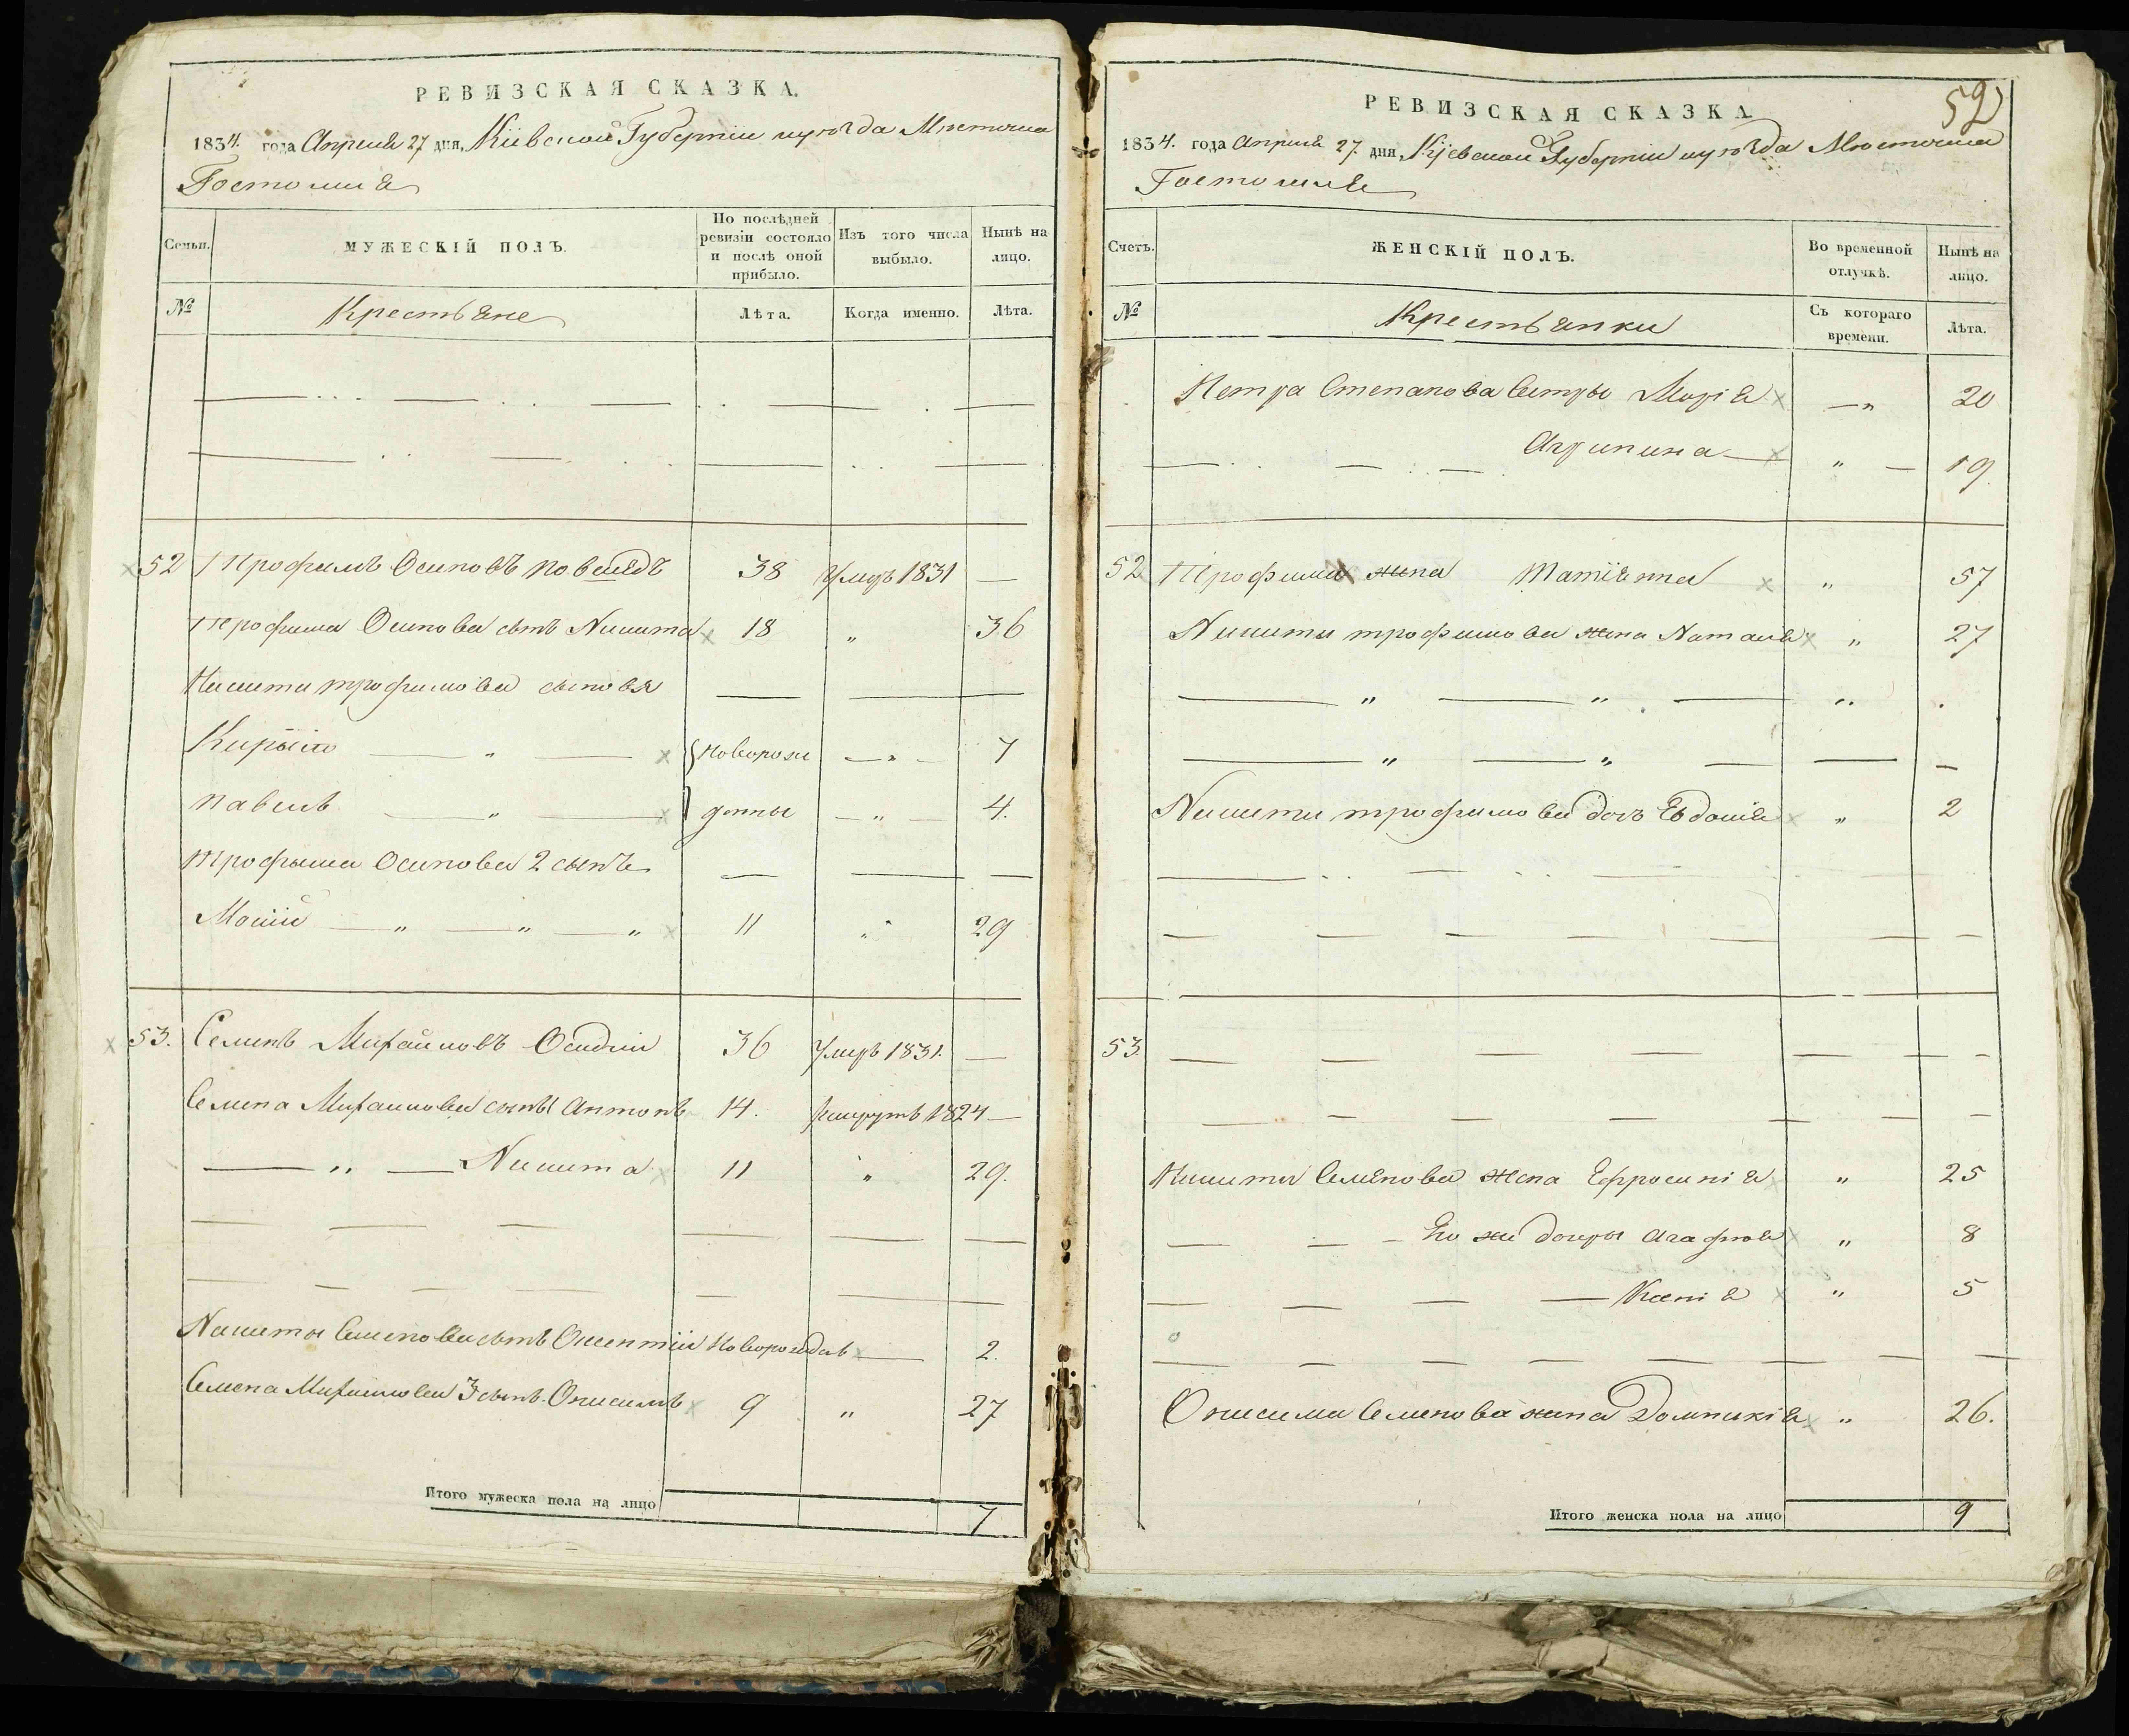 РЕВИЗСКАЯ СКАЗКА.
1834. года Апреля 27 дня, Кіевской Губерніи уѣзда Мѣстечка
Гостомля
Семьи. МУЖЕСКІЙ ПОЛЪ. По послѣдней ревизіи состояло и послѣ оной прибыло. Изъ того числа выбыло. Нынѣ на лицо.
№ Крестьяне Лѣта. Когда именно. Лѣта.
52 Трофимъ Осиповъ 38 Умръ 1831 —
Трофима Осипова сынъ Никита 18 „ 36
Никиты трофимова сыновья
Кирило — „ — новорож — „ — 7
павелъ — „ — денны — „ — 4.
Трофима Осипова 2 сынъ
Мосій — „ — „ — „ 11 „ 29
53. Семенъ Михайловъ 36 Умръ 1831. —
Семена Михаилова сыны Антонъ 14. рекрутъ 1824 —
— „ — Никита 11 „ 29.
Никиты Семенова сынъ новорожденъ — 2.
Семена Михаилова 3 сынъ. Онисимъ 9 „ 27
Итого мужеска пола на лицо 7
59
РЕВИЗСКАЯ СКАЗКА
1834. года Апреля 27. дня, Кіевской Губерніи уѣзда Мѣстечка
Гостомля
Счетъ. ЖЕНСКІЙ ПОЛЪ. Во временной отлучкѣ. Нынѣ на лицо.
№ Крестьянки Съ котораго времени. Лѣта.
Петра Степанова Сестры Марія — „ 20
Агрипина — „ — 19
52 Трофима жена Татіянна „ 57
Никиты трофимова жена Наталя „ 27
Никиты трофимова дочь Евдокія „ 2
53
Никиты Семенова жена Ефросинія „ 25
Его же дочеры Агафія „ 8
— Ксенія „ 5
Онисима Семенова жена Домникія „ 26.
Итого женска пола на лицо 9